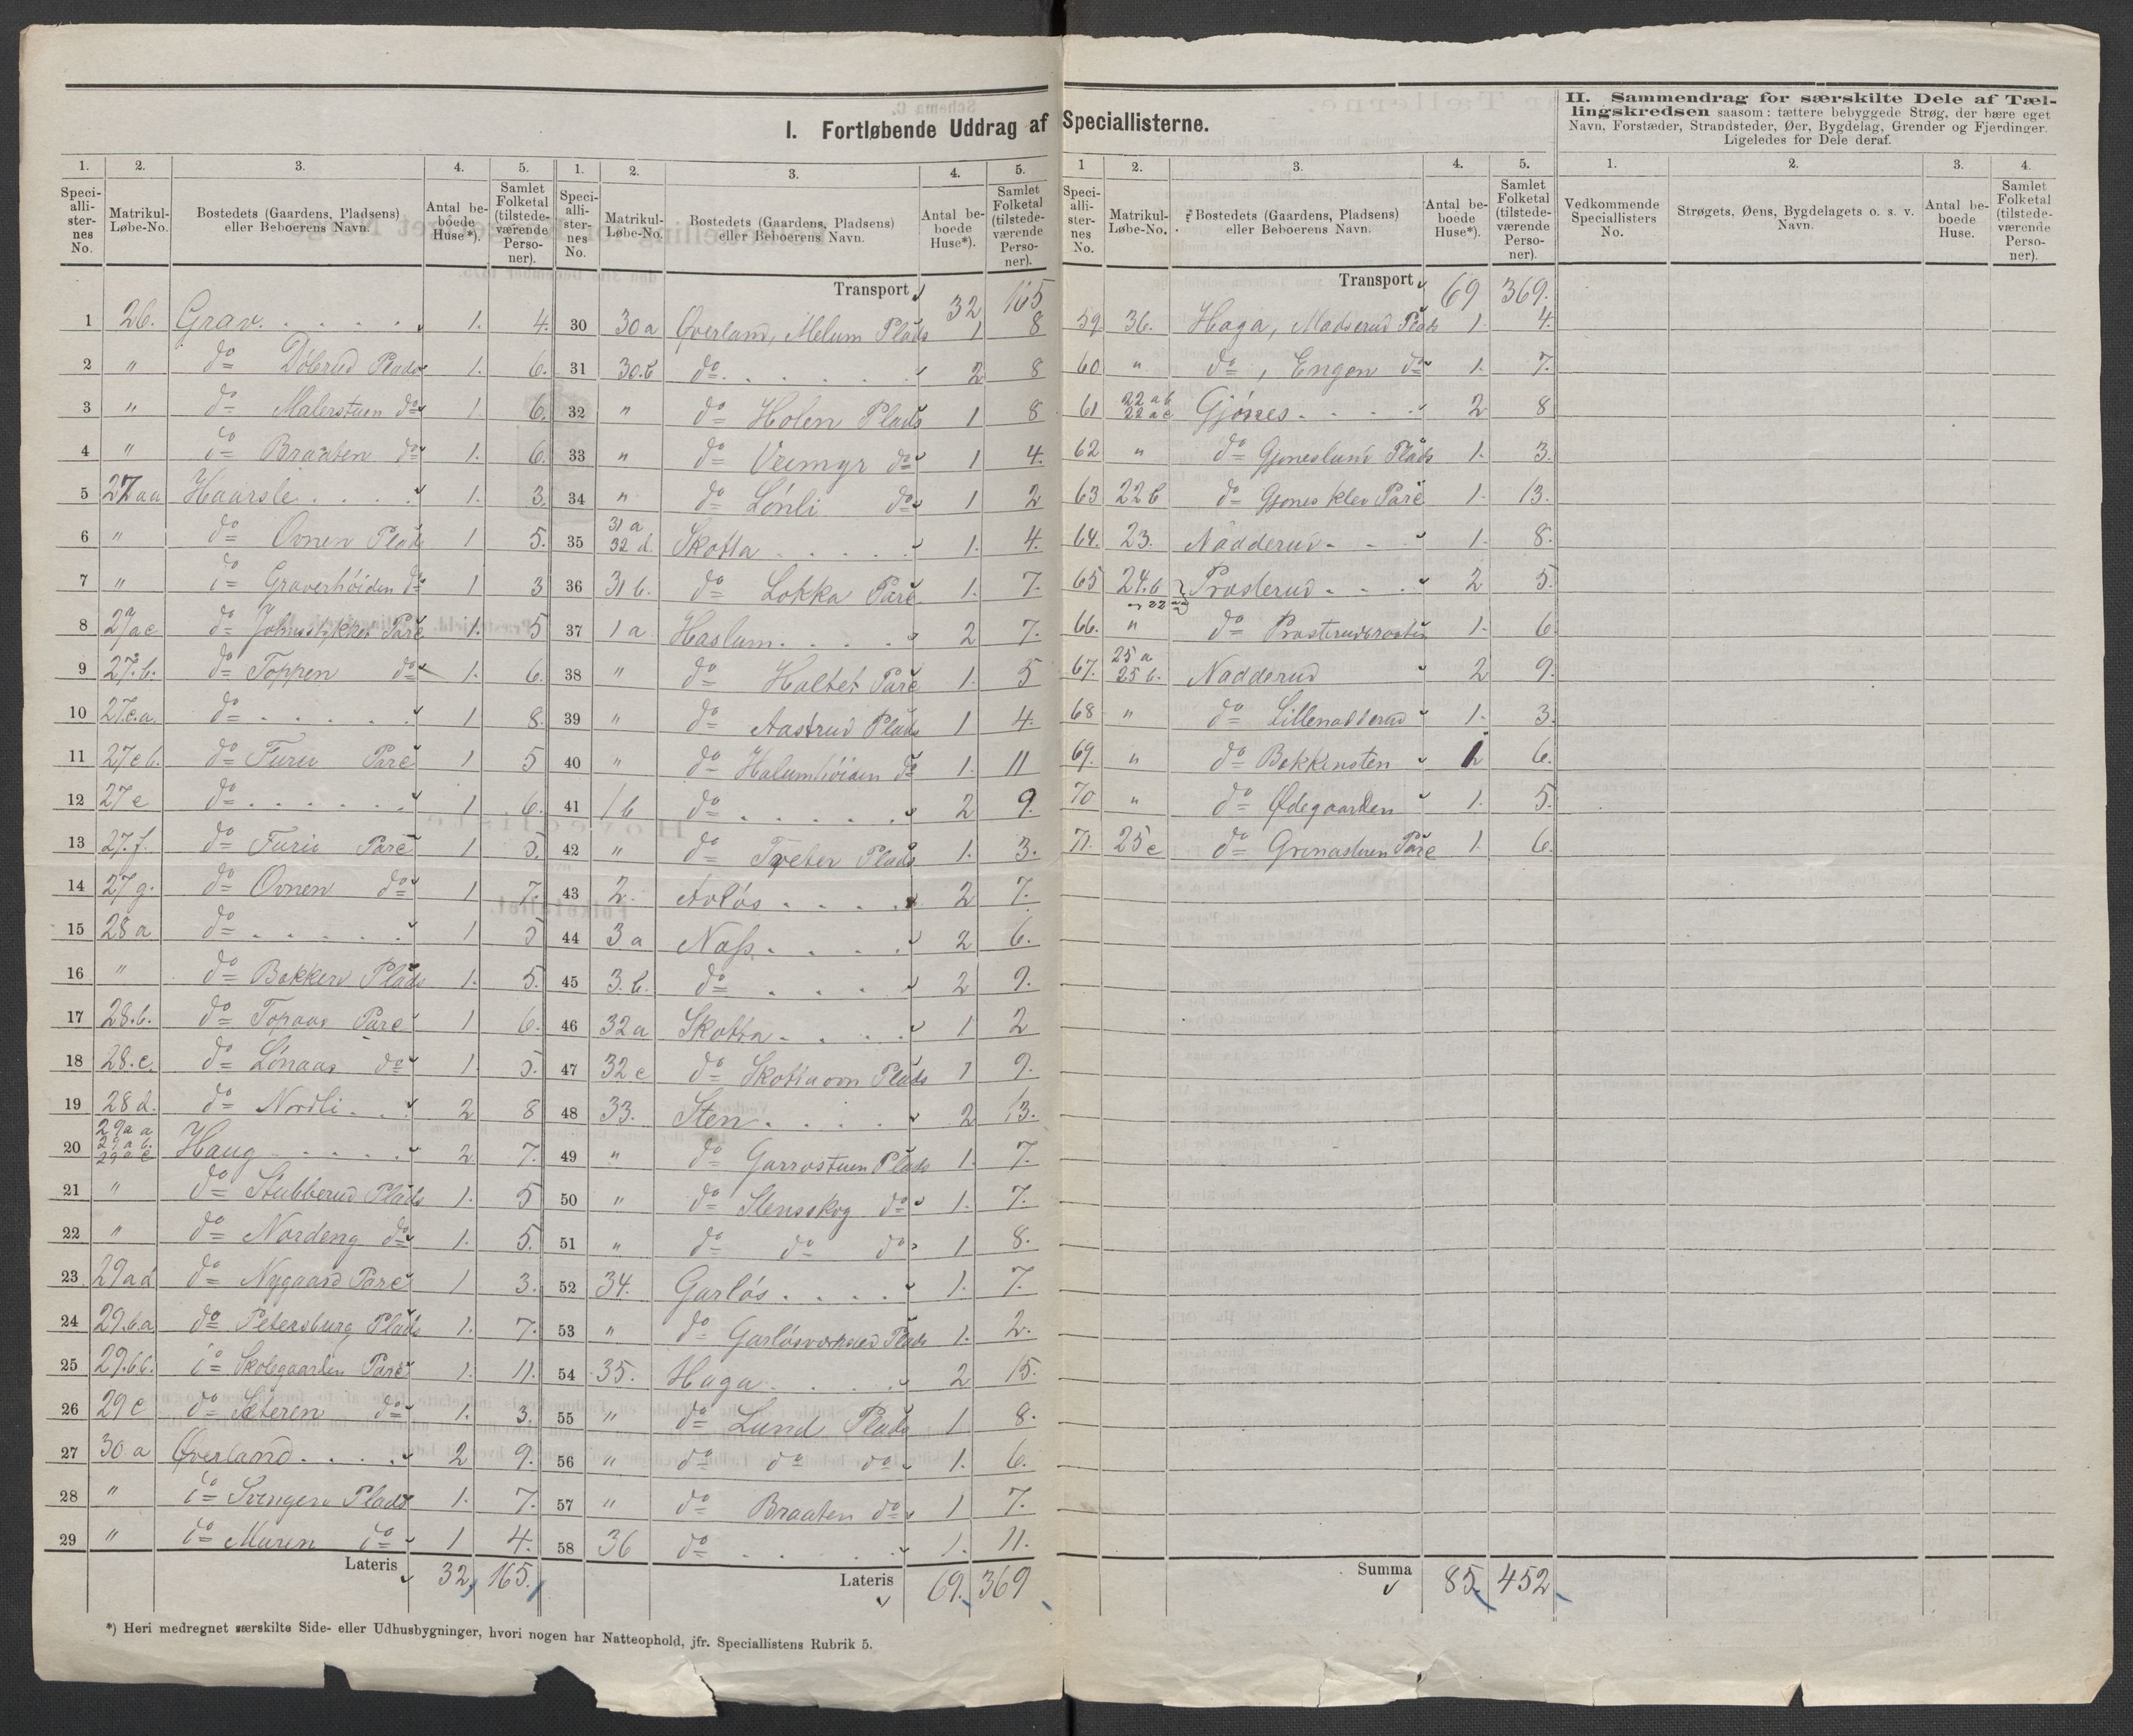 I. Fortløbende Uddrag af Speciallisterne.
II. Sammendrag for særskilte Dele af Tæl-
lingskredsen saasom: tættere bebyggede Strøg, der bære eget
Navn, Forstæder, Strandsteder, Øer, Bygdelag, Grender og Fjerdinger.
Ligeledes for Dele deraf.
1. 2. 3. 4. 5.
Speciallisternes No. Matrikul-Løbe-No. Bostedets (Gaardens, Pladsens) eller Beboerens Navn. Antal beboede Huse*). Samlet Folketal (tilstedeværende Personer).
1 26. Grav. . . . . 1. 4.
2 " do Doberud Plads 1. 6.
3 " do Malerstuen do 1. 6.
4 " do Braaten do 1. 6.
5 27aa Haarsle . . . . 1. 3.
6 " do Ovnen Plads 1 5.
7 " do Graverhöiden do 1 3
8 27ac do Parc 1. 5
9 27.b. do Toppen do 1. 6.
10 27.c.a. do . . . . . 1 8.
11 27cb. do Furu Parc 1 5
12 27e do . . . . . 1 6.
13 27.f. do Furu Parc 1 5.
14 27g. do Ovnen do 1 7.
15 28a do . . . . . 1 5
16 " do Bakken Plads 1. 5.
17 28.b. do Topaas Parc 1 6.
18 28.c. do Lönaas do 1 5.
19 28d. do Nordli . . 2 8
20 29aa 29ab. 29ac Haug . . . . . 2. 7.
21 " do Stubberud Plads 1. 5
22 " do Nordeng do 1. 5.
23 29ad do Nygaard Parc 1 3.
24 29.b.a do Petersburg Plads 1. 7.
25 29.bb. do Skolegaarden Parc 1. 11.
26 29c do Sæteren do 1. 3.
27 30a Øverland. . . . 2 9.
28 " do Svingen Plads 1. 7.
29 " do Muren do 1 4.
Lateris 32, 165.
1. 2. 3. 4. 5.
Speciallisternes No. Matrikul-Løbe-No. Bostedets (Gaardens, Pladsens) eller Beboerens Navn. Antal beboede Huse*). Samlet Folketal (tilstedeværende Personer).
Transport 32 165
30 30a Øverland, Melum Plads 1 8
31 30.b do . . . . . 2 8
32 " do Holen Plads 1 8
33 " do Vremyr do 1 4.
34 " do Lönli do 1 2
35 31a 32d. Skotta . . . . . 1. 4.
36 31b. do Lokka Parc 1. 7.
37 1a Haslum. . . . . 2 7.
38 " do Haltet Parc 1. 5
39 " do Aastrud Plads 1 4.
40 " do Halumhöiden do 1. 11
41 1b do . . . . . 2 9.
42 " do Tveter Plads 1. 3.
43 2. Avlös . . . . 2 7.
44 3a Næss. . . . . 2 6.
45 3.b. do . . . . 2 9.
46 32a Skotta. . . . . 1 2
47 32c do Skottaovn Plads 1 9.
48 33. Sten . . . . . 2 13.
49 " do Garrastuen Plads 1. 7.
50 " do Stensskog do 1. 7.
51 " do do do 1 8.
52 34. Garlös . . . . 1. 7.
53 " do Plads 1. 2.
54 35. Haga . . . . . 2 15.
55 " do Lund Plads 1 8.
56 " do do do 1. 6.
57 " do Braaten do 1 7.
58 36 do . . . . . 1. 11.
Lateris 69. 369
1 2. 3. 4. 5.
Speciallisternes No. Matrikul-Løbe-No. Bostedets (Gaardens, Pladsens) eller Beboerens Navn. Antal beboede Huse*). Samlet Folketal (tilstedeværende Personer).
Transport 69 369.
59. 36. Haga, Madserud Plads 1. 4.
60 " do, Engen do 1. 7.
61 22ab 22ac Gjönes. . . . 2 8
62 " do Gjoneslund Plads 1. 3.
63 22b do Gjonesklev Parc 1. 13.
64. 23. Nadderud . . . 1. 8.
65 24.b Prosterud . . . . 2 5.
66. " do Prosterudbraaten 1. 6
67. 25a 25b. Nadderud 2 9.
68 " do Lillenadderud 1. 3.
69. " do Bekkensten 1 6.
70 " do Ødegaarden 1. 5.
71. 25c do Grinastuen Parc 1. 6.
Summa 85. 452
1. 2. 3. 4.
Vedkommende Speciallisters No. Strøgets, Øens, Bygdelagets o. s. v. Navn. Antal beboede Huse. Samlet Folketal (tilstedeværende Personer).
*) Heri medregnet særskilte Side- eller Udhusbygninger, hvori nogen har Natteophold, jfr. Speciallistens Rubrik 5.